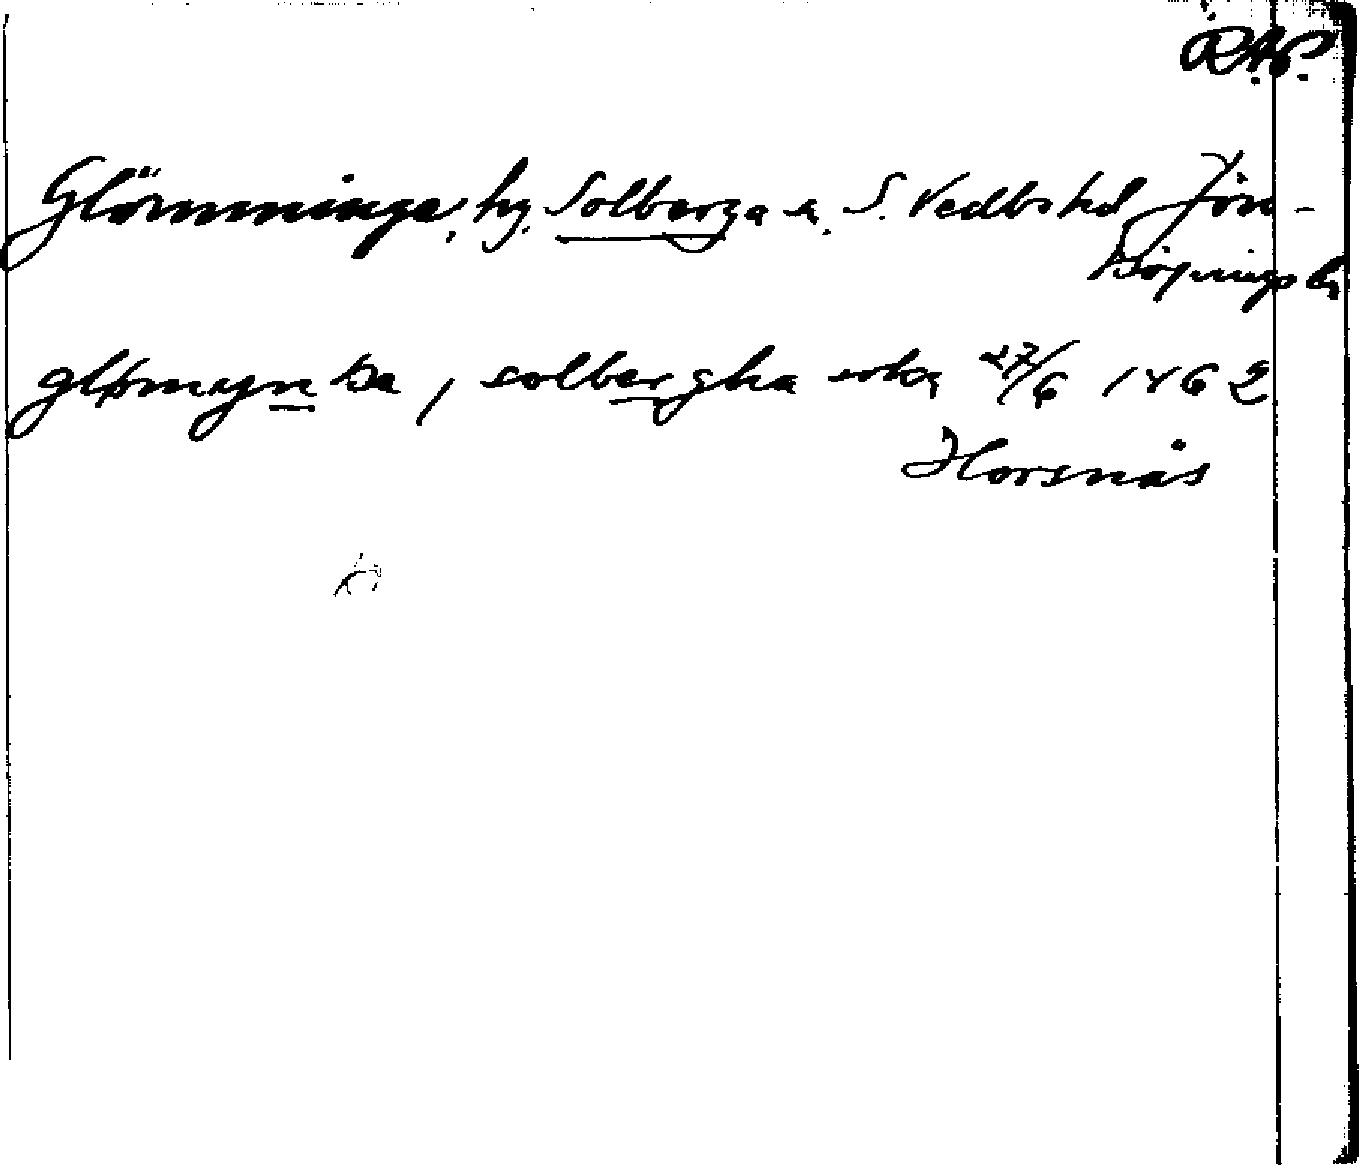 RAP.
Glömminge, by. Solberga sn. S. Vedbo hd Jön-
köpings län
glømayn ka, solbergha sokn 27/6 1462
Horsnäs